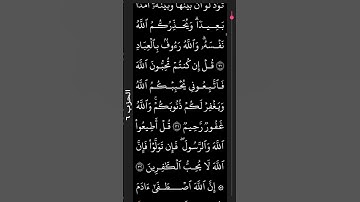 تَوَدُّ لَوْ أَنَّ بَيْنَهَا وَبَيْنَهُۥٓ أَمَدًۢا
بَعِيدٗاۗ وَيُحَذِّرُكُمُ ٱللَّهُ
نَفْسَهُۥۗ وَٱللَّهُ رَءُوفُۢ بِٱلْعِبَادِ
۝٣٠ قُلْ إِن كُنتُمْ تُحِبُّونَ ٱللَّهَ
فَٱتَّبِعُونِي يُحْبِبْكُمُ ٱللَّهُ
وَيَغْفِرْ لَكُمْ ذُنُوبَكُمْۚ وَٱللَّهُ
غَفُورٞ رَّحِيمٞ ۝٣١ قُلْ أَطِيعُوا۟
ٱللَّهَ وَٱلرَّسُولَۖ فَإِن تَوَلَّوْا۟ فَإِنَّ
ٱللَّهَ لَا يُحِبُّ ٱلْكَٰفِرِينَ ۝٣٢
۞ إِنَّ ٱللَّهَ ٱصْطَفَىٰٓ ءَادَمَ
الحزب ٦